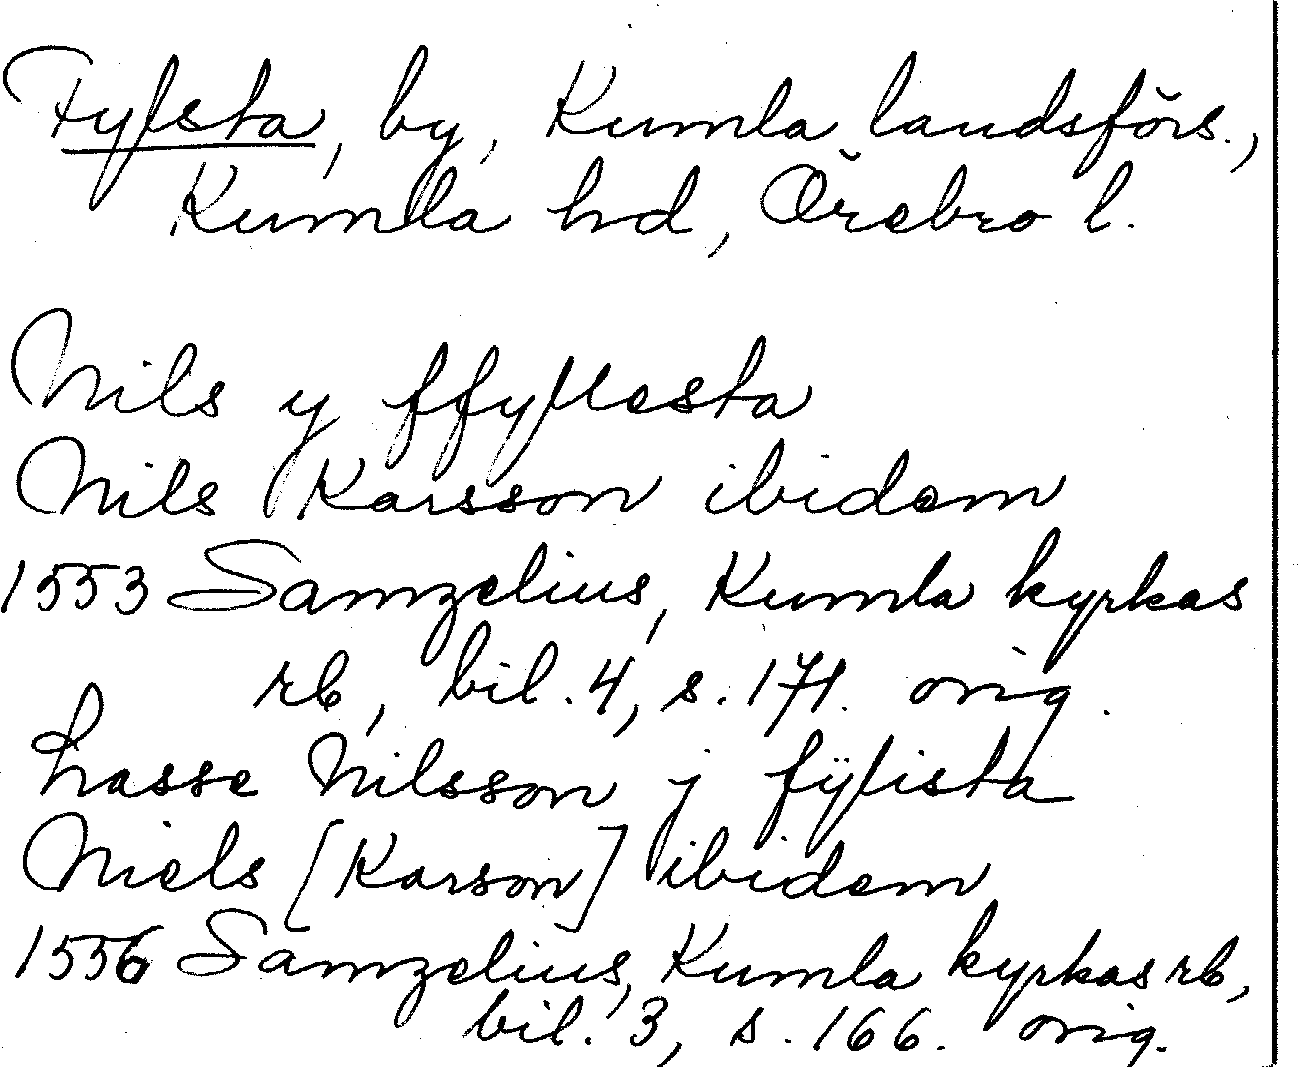 Fylsta, by, Kumla landsförs.,
Kumla hd, Örebro l.
Nils y ffyllesta
Nils Karsson ibidem
1553 Samzelius, Kumla kyrkas
rb, bil. 4, s. 171. orig.
Lasse Nilsson j fÿlista
Niels [Karson] ibidem
1556 Samzelius, Kumla kyrkas rb,
bil. 3, s. 166. orig.